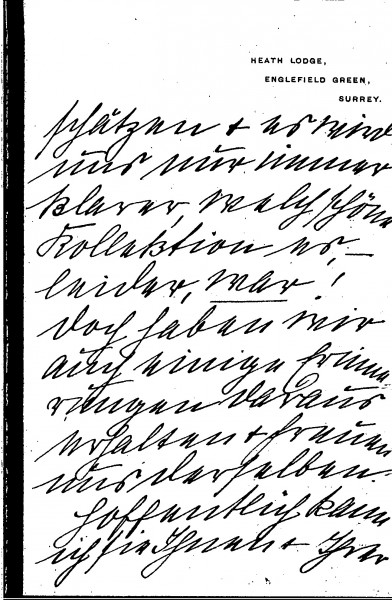 HEATH LODGE,
ENGLEFIELD GREEN,
SURREY.
schätzen + es wird
uns nur immer
klarer, welch schöne
Kollektion es, –
leider, war!
doch haben wir
auch einige Erinne
rungen daraus
erhalten + freuen
uns derselben.
Hoffentlich kann
ich sie Ihnen + Ihrer